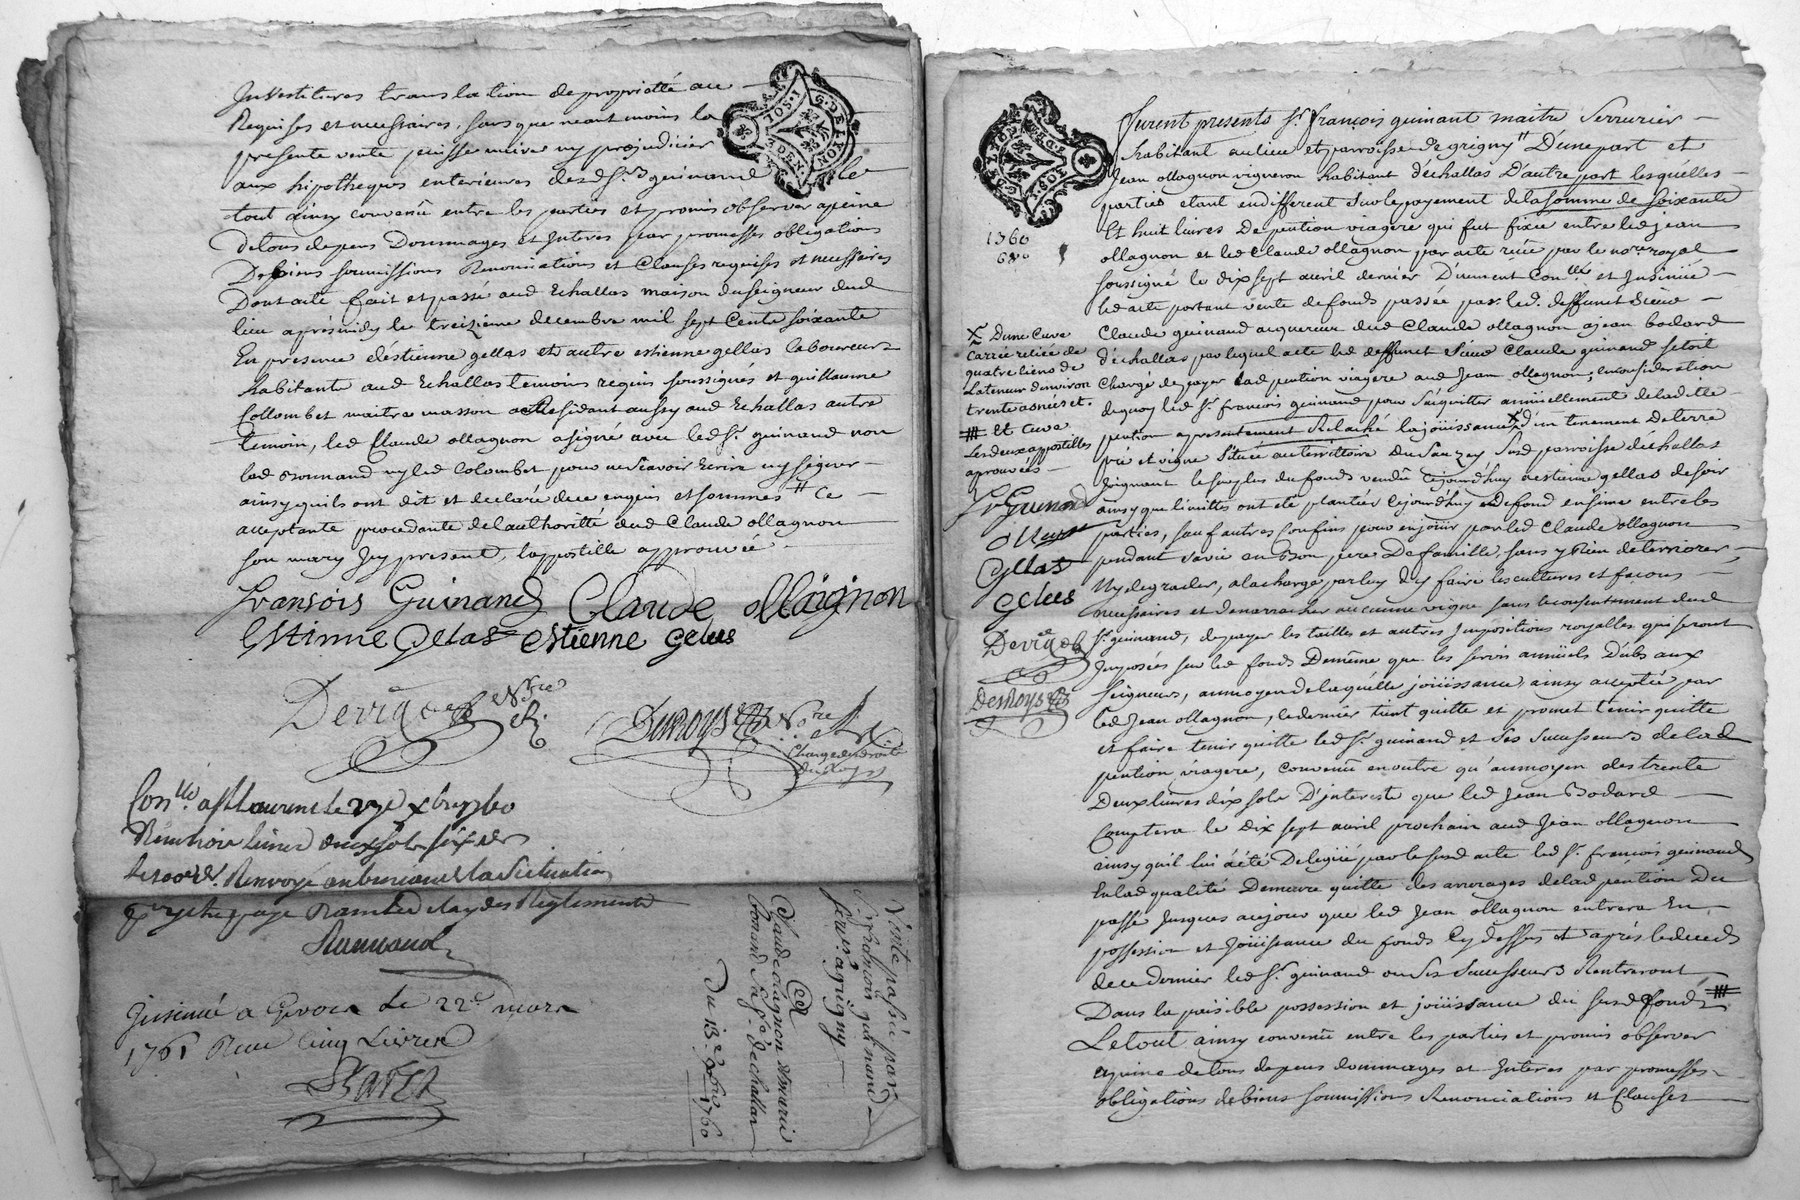 Investitures translation de propriétté au
Requises et necessaires, sans que neant moins la
presente vente puisse nuire ny prejudicier
aux hipotheques enterieures desd. Srs guinand le
tout ainsy convenû entre les parties et promis observer apeine
de tous depens Dommages et Interes par promesses obligations
De biens soumissions Renonciations et Clauses requises et necessaires
Dont acte fait et passé aud Echallas maison du seigneur dud
lieu aprésmidy le treizieme decembre mil sept Cents soixante
En presence d'éstienne gellas et autre estienne gellas laboureurs
habitants aud Echallas temoins requis soussignés et guillaume
Collombet maitre masson Residant aussy aud Echallas autre
temoin, led Claude ollagnon a signé avec led Sr guinand non
lad ny led Colombet pour ne sçavoir Ecrire ny signer
ainsy quils ont dit et declaré de ce enquis et sommés # Ce
acceptante procedante de l'authoritté dud Claude ollagnon
son mary Icy present, l'appostille approuvée
fransois Guinand Claude ollaignon
Estinne Gelas estienne gelas
G. DE LYON
1. SOL
DEN.
Con.llé a St Laurent le
deux sols six
Renvoyé au bureau de la Situation
Reglements
Insinué a Givors le 22e mars
1761 Reçu Cinq Livres
Vente passée par
Sr François guinand
serr.er a grigny
a
Claude olagnon & marié
Du 13e Xbre 1760
1760
Furent presents Sr. François guinant maitre Serrurier
habitant au lieu et parroisse de grigny # D'une part et
Jean ollagnon vigneron habitant d'échallas D'autre part lesquélles
parties étant en different sur le payement de la somme de soixante
Et huit livres De pention viagere qui fut fixée entre led jean
ollagnon et led Claude ollagnon par acte reçu par le nore royal
soussigné le dix sept avril dernier D'uement Con.llé et Insinüé
led acte portant vente de fonds passée par led. deffunct Sieur
Claude guinand acquereur dud Claude ollagnon a jean bodard
d'échallas par lequel acte led deffunct Sieur Claude guinand s'etoit
Chargé de payer lad pention viagere aud Jean ollagnon, en consideration
dequoy led Sr. françois guinand pour s'acquitter annüellement de ladite
pention a presentement Relaché la joüissance d'un tenement de terre
pré et vigne Situéé au territoire Du Sauzey Susd parroisse d'échallas
joignant le surplus du fonds vendû cejourd'huy a estienne gellas de soir
ainsy que limittes ont eté plantéz cejourd'huy en def fond en sime entre les
parties, sauf autres Confins pour en joüir par led Claude ollagnon
pendant sa vie en bon pere De famille, sans y Rien deterriorer
Ny degrader, a la charge par luy d'y faire les cultures et façons
necessaires et de n'arracher aucune vigne sans le consentement dud
Sr. guinand, de payer les tailles et autres Impositions royalles qui seront
Imposées sur led fonds De même que les servis annüels Dubs aux
Seigneurs, au moyen de laquélle joüissance, ainsy acceptée par
led Jean ollagnon, le dernier tient quitte et promet tenir quitte
et faire tenir quitte led Sr. guinand et Ses Successeurs de lad
pention viagere, Convenû en outre qu'au moyen des trente
Deux livres dix sols D'interêts que led Jean Bodard
Comptera le Dix sept avril prochain aud Jean ollagnon
ainsy quil lui a été Delegüé par le susd acte led Sr. françois guinand
En lad qualité Demeure quitte des arrerages de lad pention Du
passé Jusques aujour que led Jean ollagnon entrera En
possession et Joüissance du fonds Cy dessus et aprés le deceds
de ce dernier led Sr. guinand ou Ses Successeurs Rentreront
Dans la paisible possession et joüissance du susd fonds
Le tout ainsy convenû entre les parties et promis observer
apeine de tous depens dommages et Interes par promesses
obligations de biens soumissions Renonciations et Clauses
D'une Cuve
Carrée reliée de
quatre liens de
la teneur d'environ
trente asnées et
Et Cuve
Les deux appostilles
aprouvées
fr Guinand
Gellas
gelas